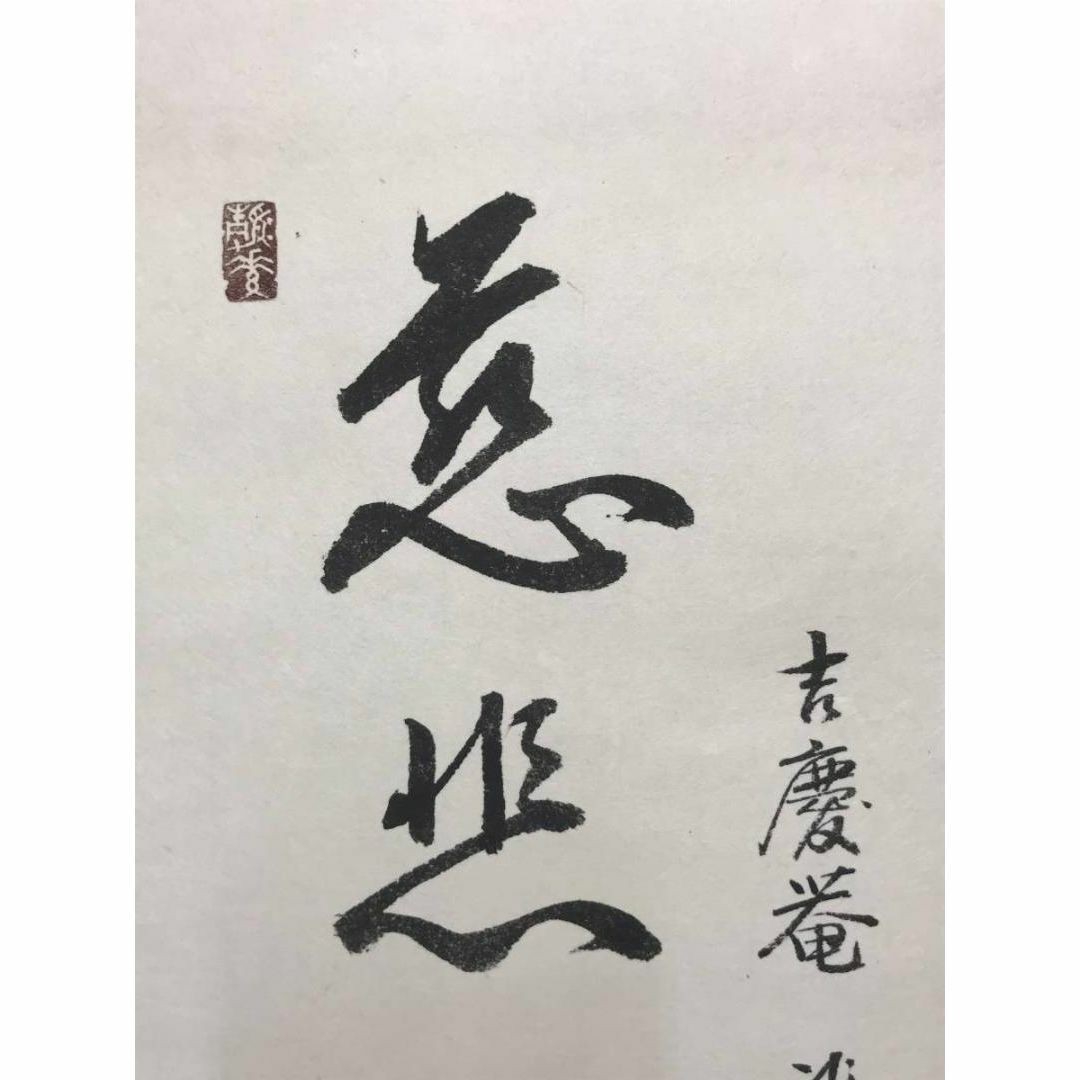 慈悲
吉慶菴